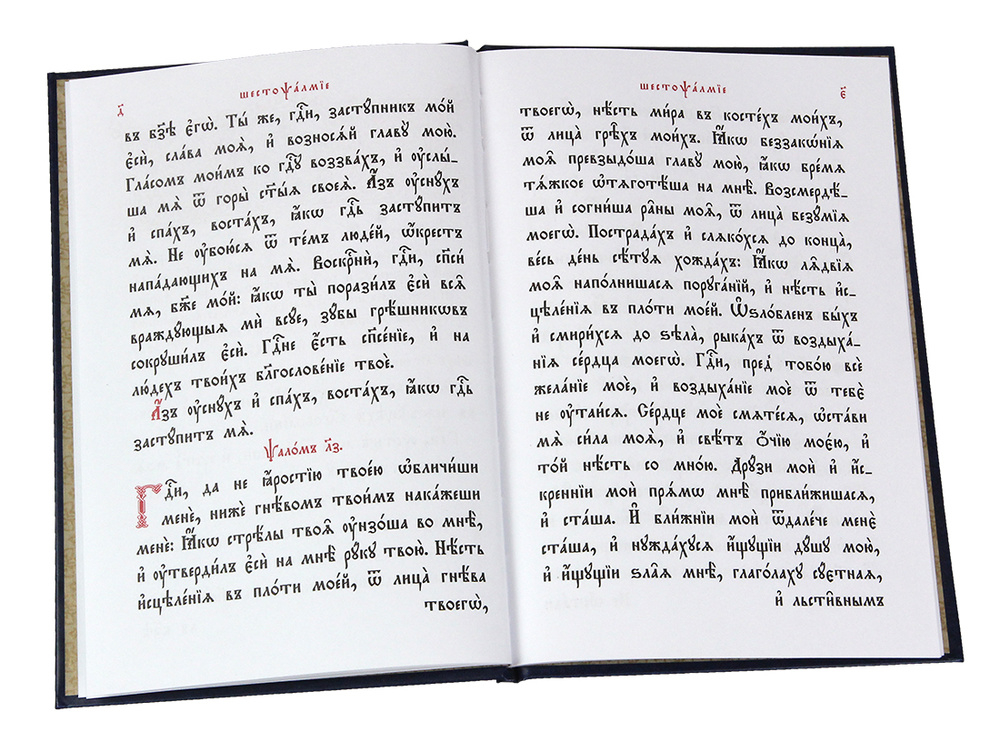 шестоѱа́лмїе
д҃
въ бз҃ѣ є҆гѡ̀. Ты́ же, гдⷭ҇и, застꙋ́пникъ мо́й
є҆сѝ, сла́ва моѧ̀, и҆ вознося́й главꙋ̀ мою̀.
Гла́сомъ мои́мъ ко гдⷭ҇ꙋ воззва́хъ, и҆ ᲂу҆слы́_
ша мѧ̀ ѿ горы̀ ст҃ы́ѧ своеѧ̀. А҆́зъ ᲂу҆снꙋ́хъ
и҆ спа́хъ, воста́хъ, ꙗ҆́кѡ гдⷭ҇ь застꙋ́питъ
мѧ̀. Не ᲂу҆бою́сѧ ѿ те́мъ люде́й, ѡ҆́крестъ
напа́дающихъ на мѧ̀. Воскрⷭ҇нѝ, гдⷭ҇и, сп҃сѝ
мѧ, бж҃е мо́й: ꙗ҆́кѡ ты̀ порази́лъ є҆сѝ всѧ̑
враждꙋ́ющыѧ мѝ всꙋ́е, зꙋ́бы грѣ́шникѡвъ
сокрꙋши́лъ є҆сѝ. Гдⷭ҇не є҆́сть сп҃се́нїе, и҆ на
лю́дехъ твои́хъ блг҃ослове́нїе твоѐ.
А҆́зъ ᲂу҆снꙋ́хъ и҆ спа́хъ, воста́хъ, ꙗ҆́кѡ гдⷭ҇ь
застꙋ́питъ мѧ̀.
Ѱало́мъ л҃з.
Гдⷭ҇и, да не ꙗ҆́ростїю твое́ю ѡ҆бличи́ши
менѐ, нижѐ гнѣ́вомъ твои́мъ нака́жеши
менѐ: Ꙗ҆́кѡ стрѣ́лы твоѧ̑ ᲂу҆нзо́ша во мнѣ̀,
и҆ ᲂу҆тверди́лъ є҆сѝ на мнѣ̀ рꙋ́кꙋ твою̀. Нѣ́сть
и҆сцѣле́нїѧ въ пло́ти мое́й, ѿ лица̀ гнѣ́ва
твоегѡ̀,
шестоѱа́лмїе
є҃
твоегѡ̀, нѣ́сть ми́ра въ косте́хъ мои́хъ,
ѿ лица̀ грѣ̑хъ мои́хъ. Ꙗ҆́кѡ беззакѡ́нїѧ
моѧ̑ превзыдо́ша главꙋ̀ мою̀, ꙗ҆́кѡ бре́мѧ
тѧ́жкое ѡ҆тѧготѣ́ша на мнѣ̀. Возсмердѣ́_
ша и҆ согни́ша ра̑ны моѧ̑, ѿ лица̀ безꙋ́мїѧ
моегѡ̀. Пострада́хъ и҆ слѧко́хсѧ до конца̀,
ве́сь де́нь сѣ́тꙋѧ хожда́хъ: Ꙗ҆́кѡ лѧ̑двїѧ
моѧ̑ напо́лнишасѧ порꙋга́нїй, и҆ нѣ́сть и҆с_
цѣле́нїѧ въ пло́ти мое́й. Ѡ҆ѕло́бленъ бы́хъ
и҆ смири́хсѧ до ѕѣла̀, рыка́хъ ѿ воздыха́_
нїѧ се́рдца моегѡ̀. Гдⷭ҇и, пред̾ тобо́ю всѐ
жела́нїе моѐ, и҆ воздыха́нїе моѐ ѿ тебє̀
не ᲂу҆таи́сѧ. Се́рдце моѐ смѧте́сѧ, ѡ҆ста́ви
мѧ̀ си́ла моѧ̀, и҆ свѣ́тъ ѻ҆́чїю моє́ю, и҆
то́й нѣ́сть со мно́ю. Дрꙋ́зи моѝ и҆ и҆́с_
креннїи моѝ прѧ́мѡ мнѣ̀ прибли́жишасѧ,
и҆ ста́ша. И҆ бли́жнїи моѝ ѿдале́че менє̀
ста́ша, и҆ нꙋжда́хꙋсѧ и҆́щꙋщїи дꙋ́шꙋ мою̀,
и҆ и҆́щꙋщїи ѕла̑ѧ мнѣ̀, глаго́лахꙋ сꙋ́єтнаѧ,
и҆ льсти̑внымъ